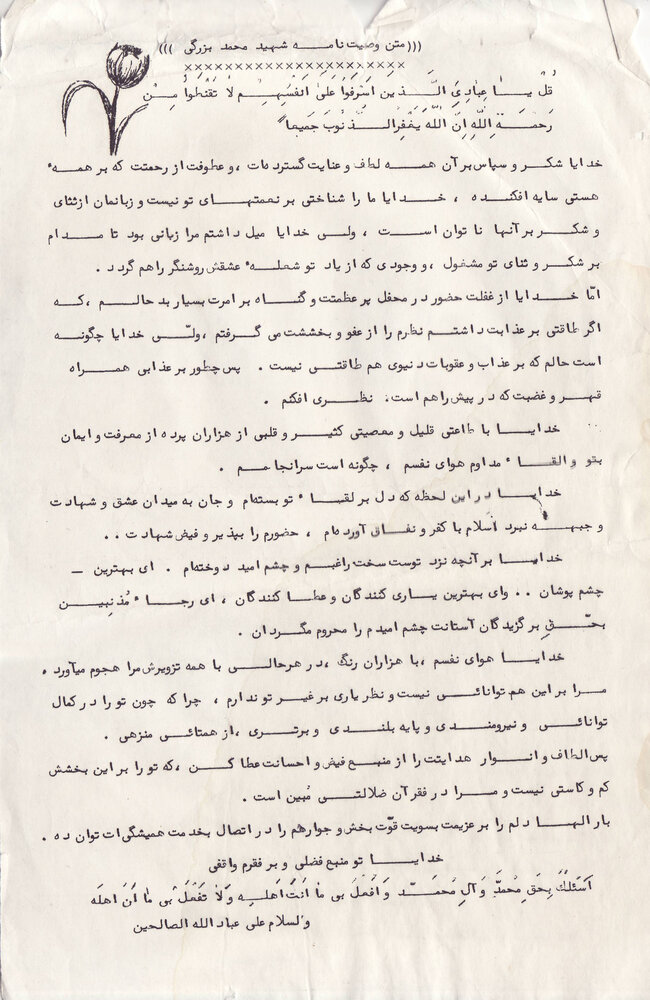 (((متن وصیت نامه شهید محمد بزرگی)))
××××××××××××××××××××××
قُلْ یا عِبادِیَ الَّذین اَسْرَفُوا عَلیٰ اَنْفُسِهِم لا تَقْنَطُوا مِن
رَحمَةِ اللّهِ اِنَّ اللّهَ یَغفِرُ الذُّنوبَ جَمیعاً"
خدایا شکر و سپاس بر آن همه لطف و عنایت گسترده‌ات ، و عطوفت از رحمتت که بر همهٔ
هستی سایه افکنده ، خدایا ما را شناختی بر نعمتهای تو نیست و زبانمان از ثنای
و شکر بر آنها نا توان است ، ولی خدایا میل داشتم مرا زبانی بود تا مدام
بر شکر و ثنای تو مشغول ، و وجودی که از یاد تو شعلهٔ عشقش روشنگر راهم گردد .
امّا خدایا از غفلت حضور در محفل پر عظمتت و گناه بر امرت بسیار بد حالم ، که
اگر طاقتی بر عذابت داشتم نظرم را از عفو و بخششت می گرفتم ، ولّی خدایا چگونه
است حالم که بر عذاب و عقوبات دنیوی هم طاقتی نیست . پس چطور بر عذابی همراه
قهر و غضبت که در پیش راهم است، نظری افکنم .
خدایا با طاعتی قلیل و معصیتی کثیر و قلبی از هزاران پرده از معرفت و ایمان
بتو و القاء مداوم هوای نفسم ، چگونه است سرانجامم .
خدایا در این لحظه که دل بر لقاء تو بسته‌ام و جان به میدان عشق و شهادت
و جبهه نبرد اسلام با کفر و نفاق آورده‌ام ، حضورم را بپذیر و فیض شهادت . .
خدایا بر آنچه نزد توست سخت راغبم و چشم امید دوخته‌ام . ای بهترین –
چشم پوشان . . وای بهترین یاری کنندگان و عطا کنندگان ، ای رجاء مُذنبین
بحّقِ برگزیدگان آستانت چشم امیدم را محروم مگردان .
خدایا هوای نفسم ، با هزاران رنگ ، در هرحالی با همه تزویرش مرا هجوم میآورد .
مرا بر این هم توانائی نیست و نظر یاری بر غیر تو ندارم ، چرا که چون تو را در کمال
توانائی و نیرومندی و پایه بلندی و برتری ، از همتائی منزهی .
پس الطاف و انوار هدایتت را از منبع فیض و احسانت عطا کن ، که تو را بر این بخشش
کم و کاستی نیست و مرا در فقر آن ضلالتی مُبین است .
بار الها دلم را بر عزیمت بسویت قوّت بخش و جوارهم را در اتصال بخدمت همیشگی‌ات توان ده .
خدایا تو منبع فضلی و بر فقرم واقفی
اَسْئَلُكَ بِحَق مُحمَدٍّ وَ آلِ مُحمَّد وَ اَفْعَل بی ما اَنتَ اَهلِه وَ لا تَفْعَلْ بی ما اَنَ اهله
والسلام علی عباد الله الصالحین